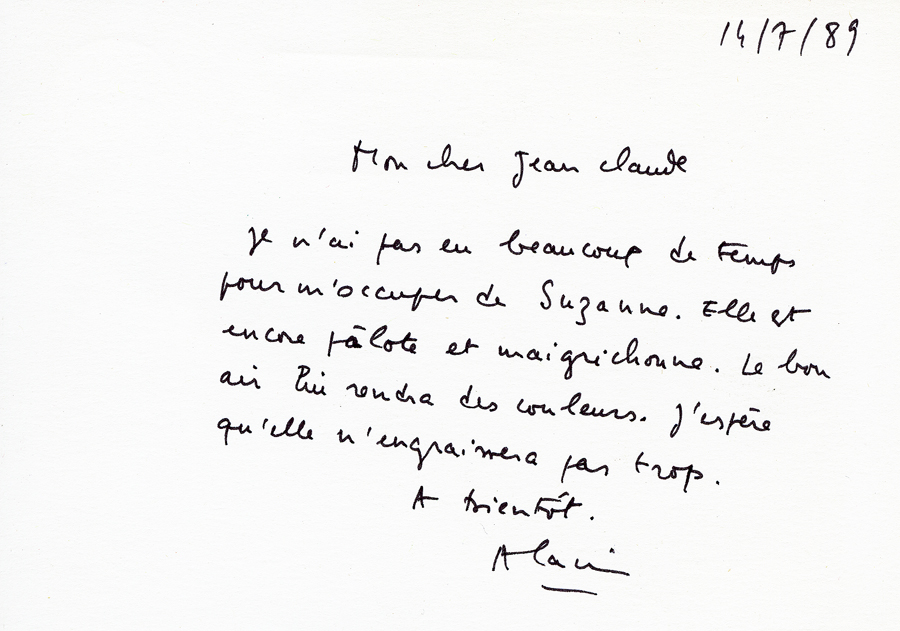 14/7/89
Mon cher Jean Claude
Je n'ai pas eu beaucoup de temps
pour m'occuper de Suzanne. Elle est
encore pâlote et maigrichonne. Le bon
air lui rendra des couleurs. J'espère
qu'elle n'engraissera pas trop.
A bientôt.
Alain